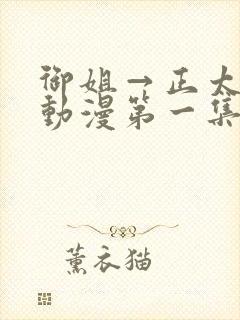 御姐→正太
動漫第一集
薰衣猫